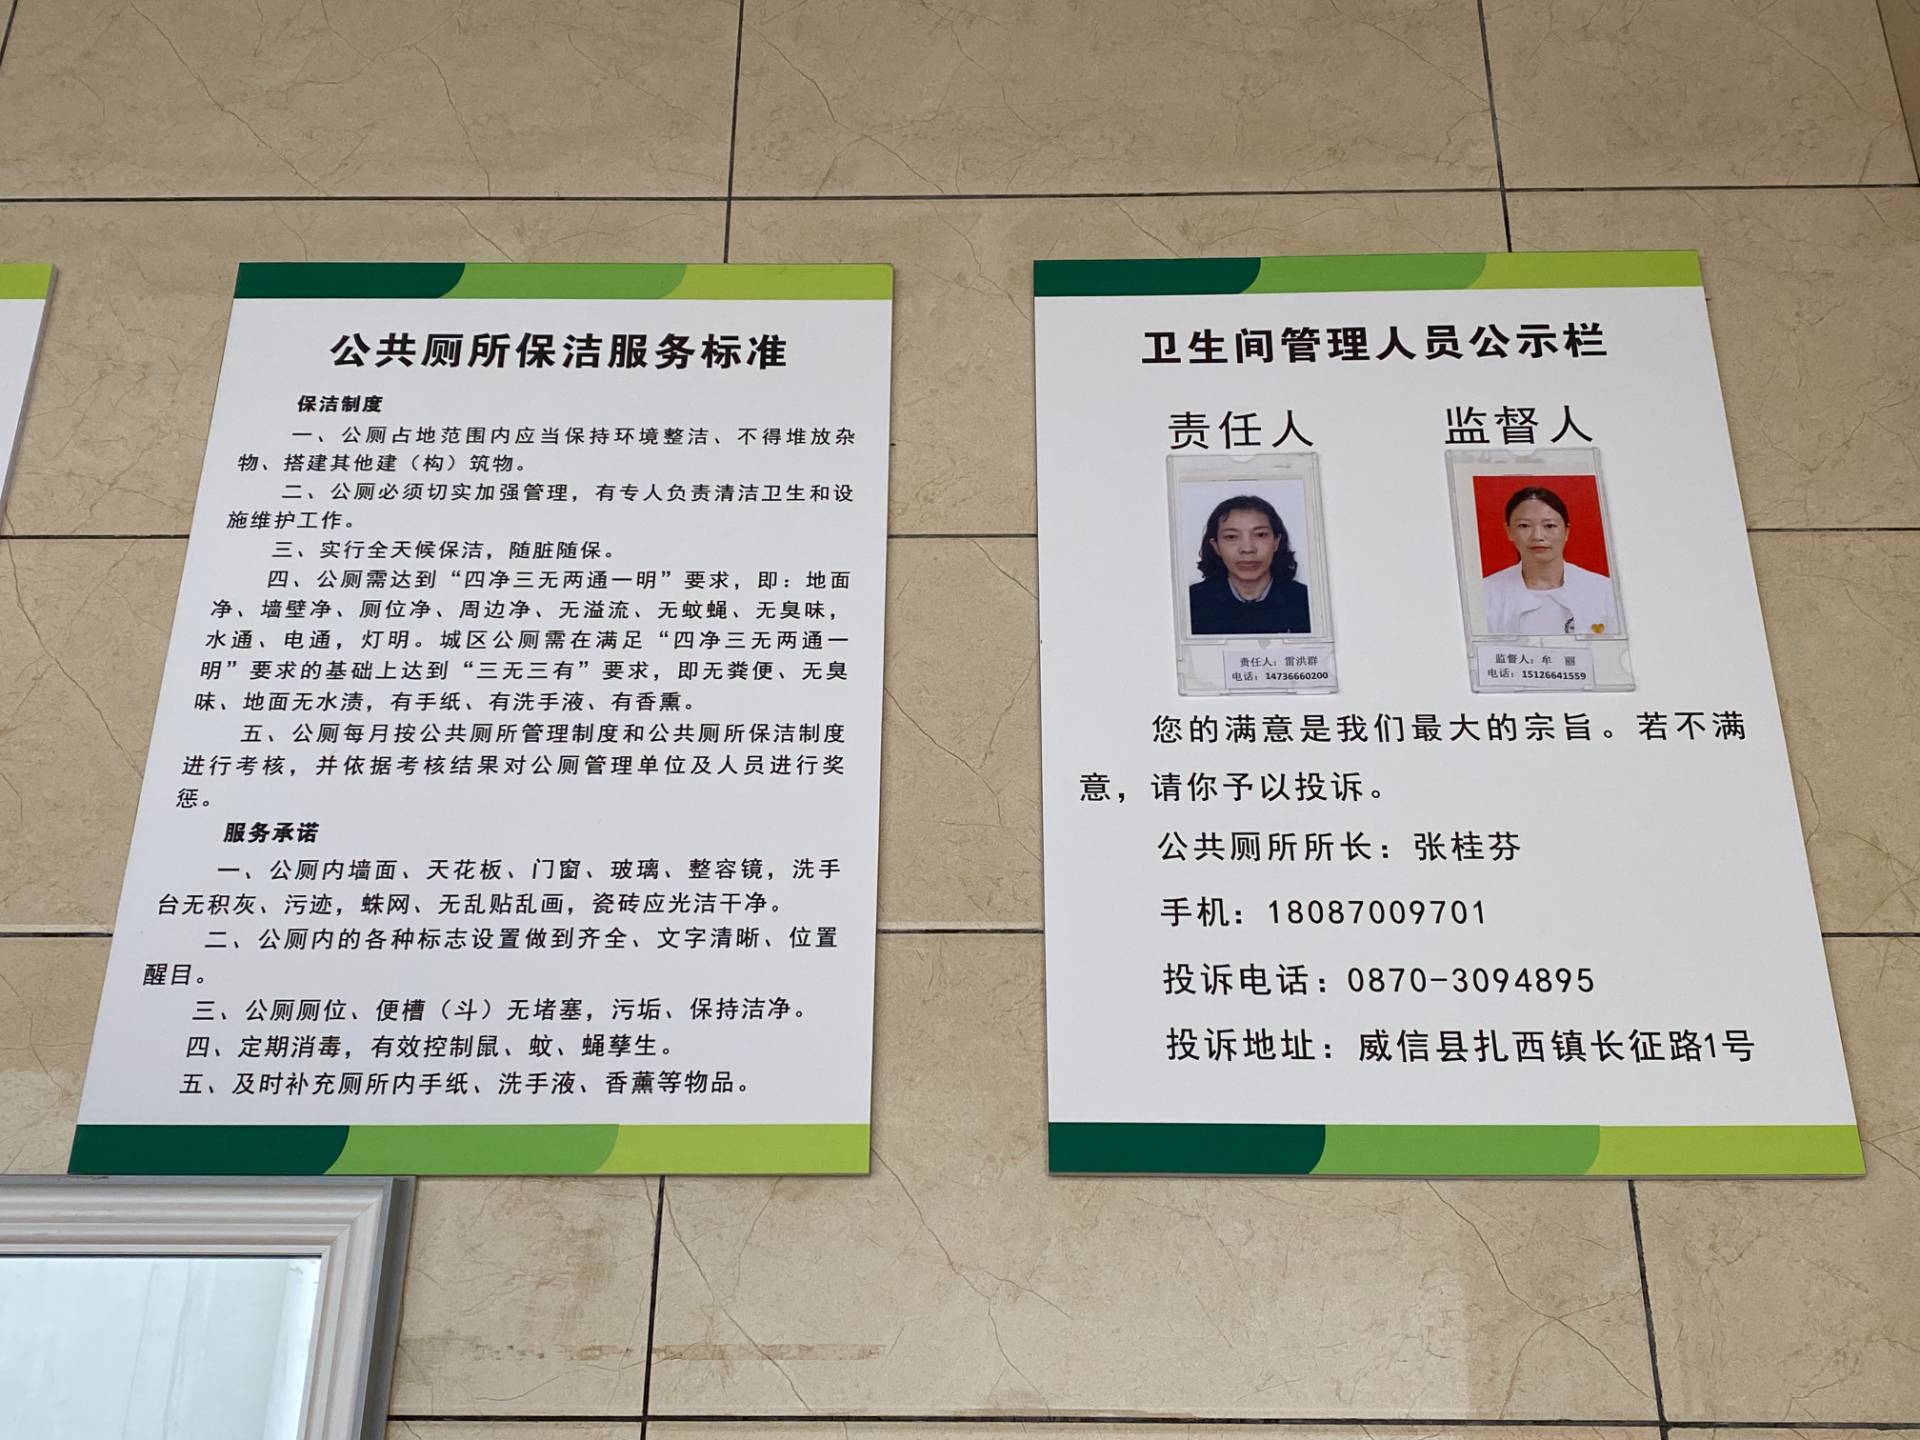 公共厕所保洁服务标准
保洁制度
一、公厕占地范围内应当保持环境整洁、不得堆放杂
物、搭建其他建（构）筑物。
二、公厕必须切实加强管理，有专人负责清洁卫生和设
施维护工作。
三、实行全天候保洁，随脏随保。
四、公厕需达到“四净三无两通一明”要求，即：地面
净、墙壁净、厕位净、周边净、无溢流、无蚊蝇、无臭味，
水通、电通，灯明。城区公厕需在满足“四净三无两通一
明”要求的基础上达到“三无三有”要求，即无粪便、无臭
味、地面无水渍，有手纸、有洗手液、有香熏。
五、公厕每月按公共厕所管理制度和公共厕所保洁制度
进行考核，并依据考核结果对公厕管理单位及人员进行奖
惩。
服务承诺
一、公厕内墙面、天花板、门窗、玻璃、整容镜，洗手
台无积灰、污迹，蛛网、无乱贴乱画，瓷砖应光洁干净。
二、公厕内的各种标志设置做到齐全、文字清晰、位置
醒目。
三、公厕厕位、便槽（斗）无堵塞，污垢、保持洁净。
四、定期消毒，有效控制鼠、蚊、蝇孳生。
五、及时补充厕所内手纸、洗手液、香薰等物品。
卫生间管理人员公示栏
责任人
监督人
责任人：雷洪群
电话：14736660200
监督人：牟 丽
电话：15126641559
您的满意是我们最大的宗旨。若不满
意，请你予以投诉。
公共厕所所长：张桂芬
手机：18087009701
投诉电话：0870-3094895
投诉地址：威信县扎西镇长征路1号